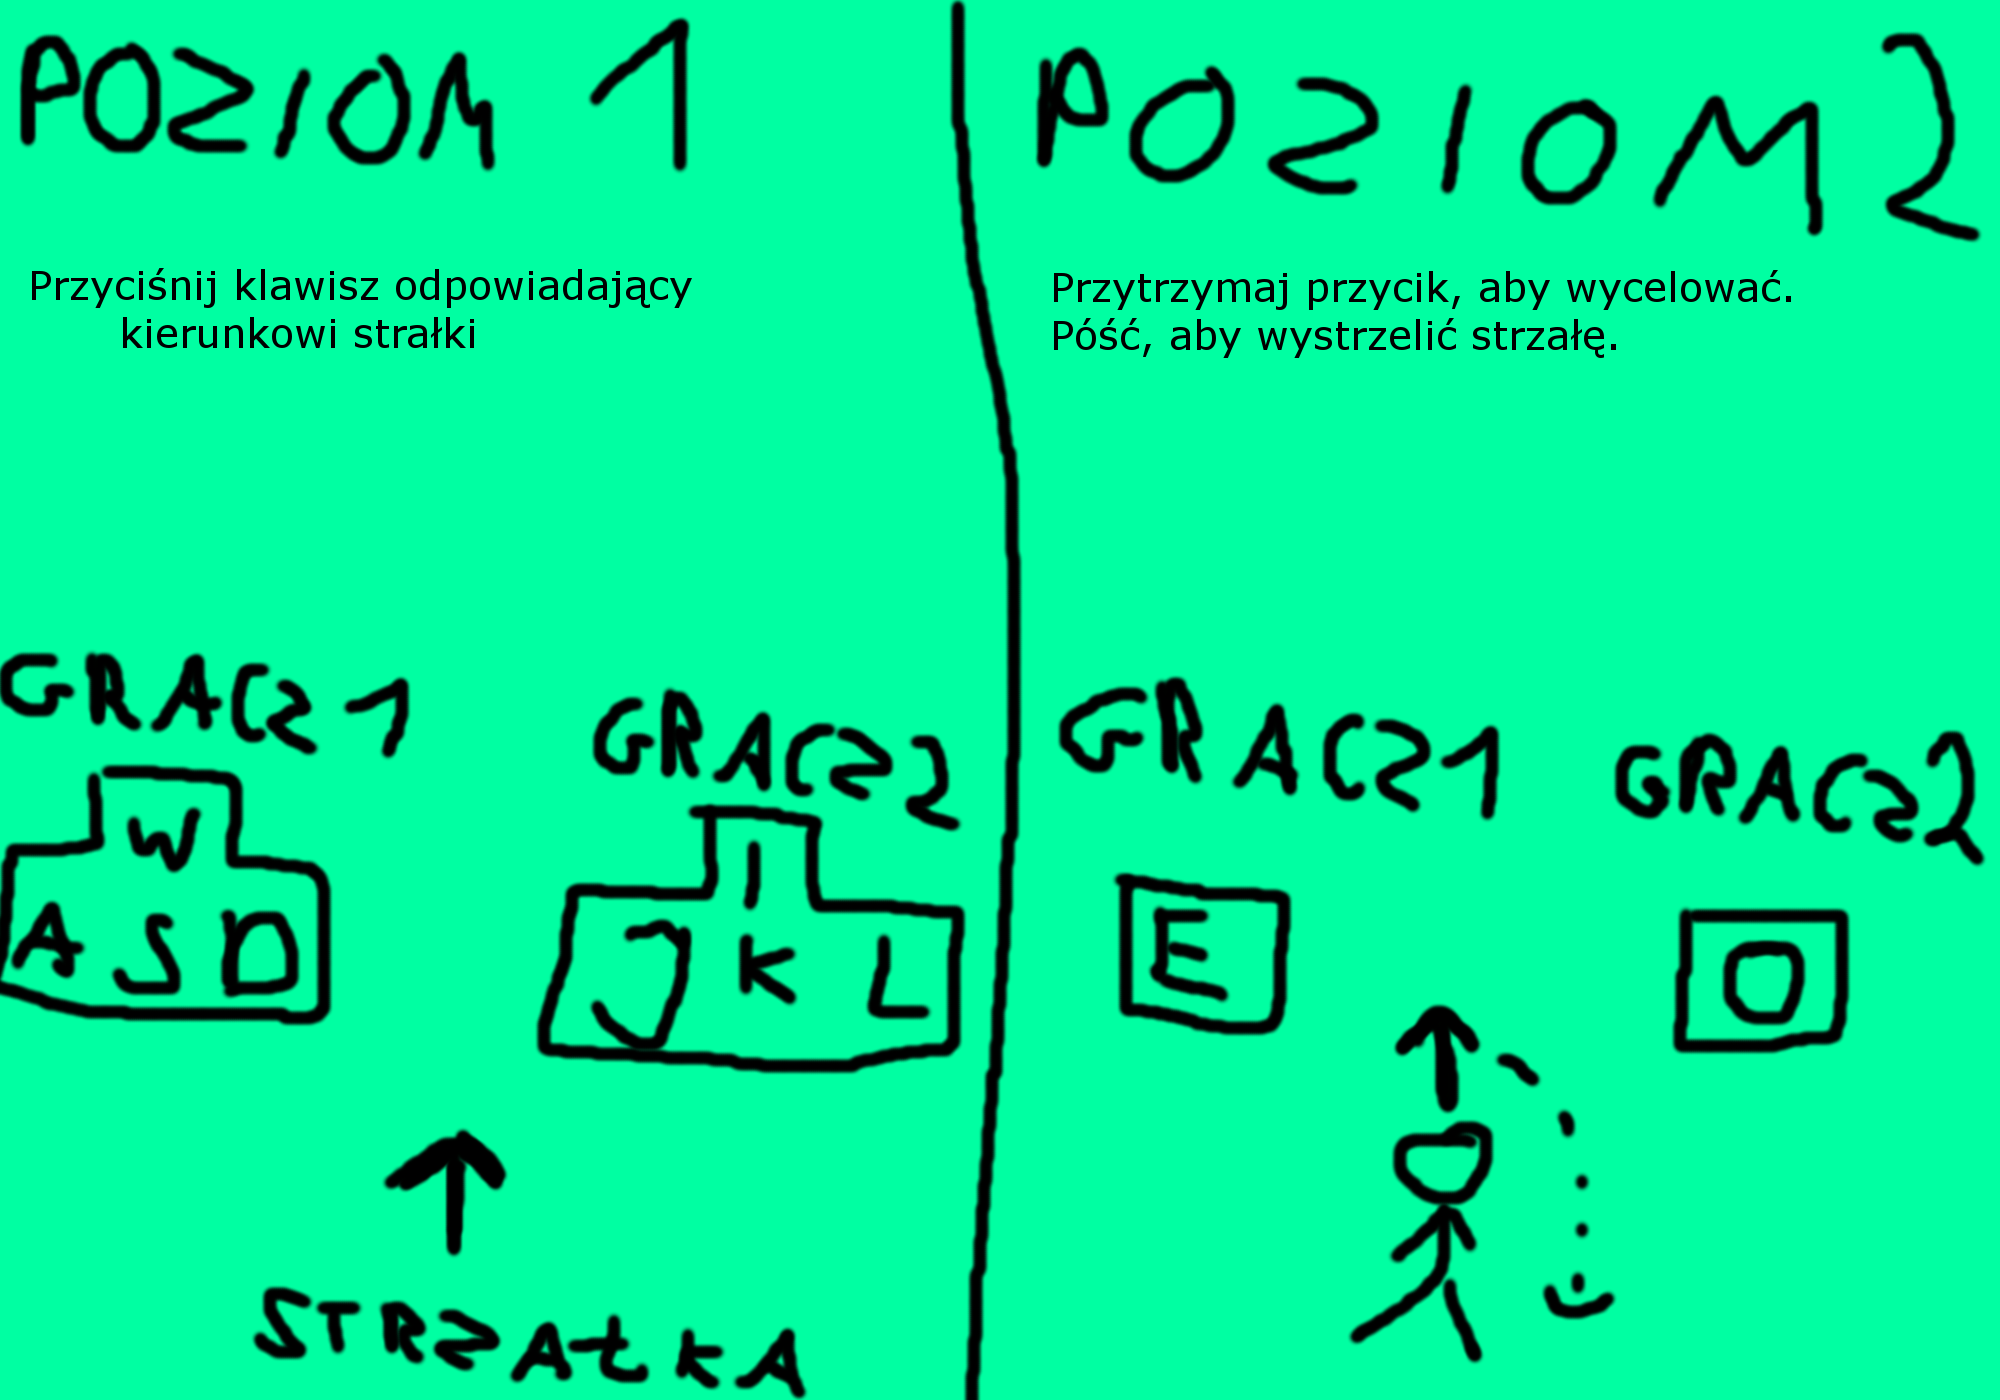 POZIOM 1
Przyciśnij klawisz odpowiadający
kierunkowi strałki
GRACZ 1
W
A S D
GRACZ 2
I
J K L
STRZAŁKA
POZIOM 2
Przytrzymaj przycik, aby wycelować.
Póść, aby wystrzelić strzałę.
GRACZ 1
E
GRACZ 2
O